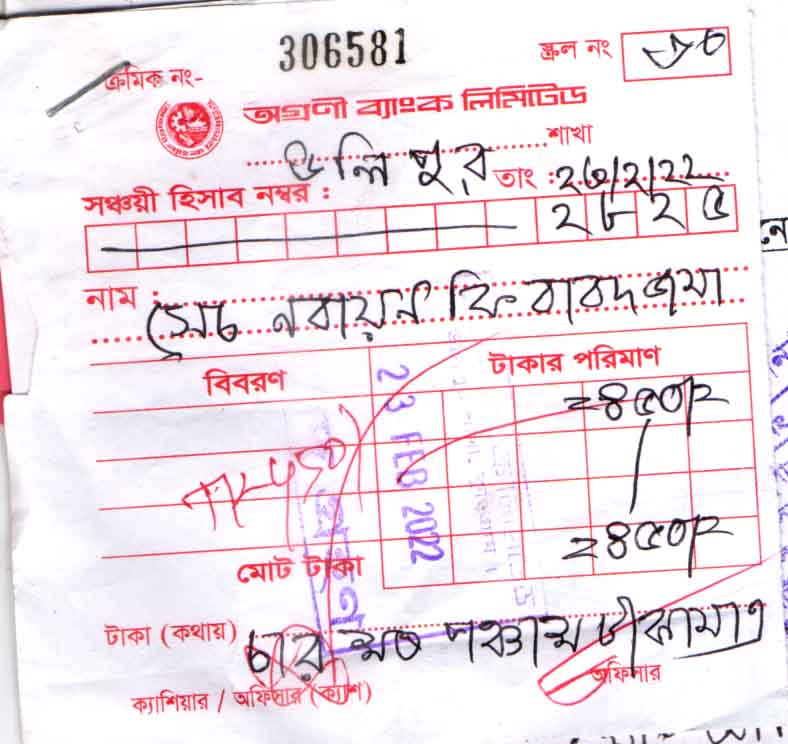 306581
ক্রমিক নং-
স্ক্রল নং
অগ্রণী ব্যাংক লিমিটেড
উলিপুর শাখা
তাং : ২৩/২/২২
সঞ্চয়ী হিসাব নম্বর :
২৮২৫
নাম : সেচ নবায়ন ফি বাবদ জমা
বিবরণ টাকার পরিমাণ
=৪৫০/=
23 FEB 2022
মোট টাকা =৪৫০/=
টাকা (কথায়) চার শত পঞ্চাশ টাকা মাত্র
ক্যাশিয়ার / অফিসার (ক্যাশ) অফিসার